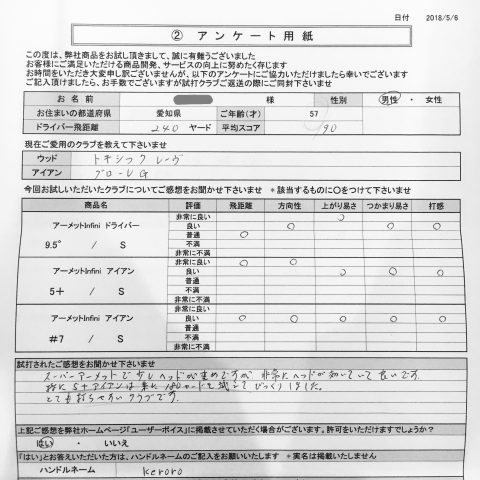 日付 2018/5/6
② アンケート用紙
この度は、弊社商品をお試し頂きまして、誠に有難うございました
お客様にご満足いただける商品開発、サービスの向上に努めたく存じます
お時間をいただき大変申し訳ございませんが、以下のアンケートにご協力いただけましたら幸いでございます
ご記入頂けましたら、お手数でございますが試打クラブご返送の際にご同封下さいませ
お名前 様 性別 男性 ・ 女性
お住まいの都道府県 愛知県 ご年齢(才) 57
ドライバー飛距離 240 ヤード 平均スコア 90
現在ご愛用のクラブを教えて下さいませ
ウッド トキシック レーヴ
アイアン グローレ G
今回お試しいただいたクラブについてご感想をお聞かせ下さいませ *該当するものに〇をつけて下さいませ
商品名 評価 飛距離 方向性 上がり易さ つかまり易さ 打感
アーメットInfini ドライバー
9.5° / S
非常に良い ○
良い ○ ○ ○
普通 ○
不満
非常に不満
アーメットInfini アイアン
5+ / S
非常に良い ○ ○
良い ○ ○ ○
普通
不満
非常に不満
アーメットInfini アイアン
#7 / S
非常に良い
良い ○ ○ ○ ○ ○
普通
不満
非常に不満
試打されたご感想をお聞かせ下さいませ
スーパーアーメットで少しヘッドが重めですが、非常にヘッドが利いていて良いです。
特に5+アイアンは楽に180ヤードを越えてびっくりしました。
とても打ちやすいクラブです。
上記ご感想を弊社ホームページ「ユーザーボイス」に掲載させていただく場合がございます。許可をいただけますでしょうか？
はい ・ いいえ
「はい」とお答えいただいた方は、ハンドルネームのご記入をお願いいたします *実名は掲載いたしません
ハンドルネーム keroro